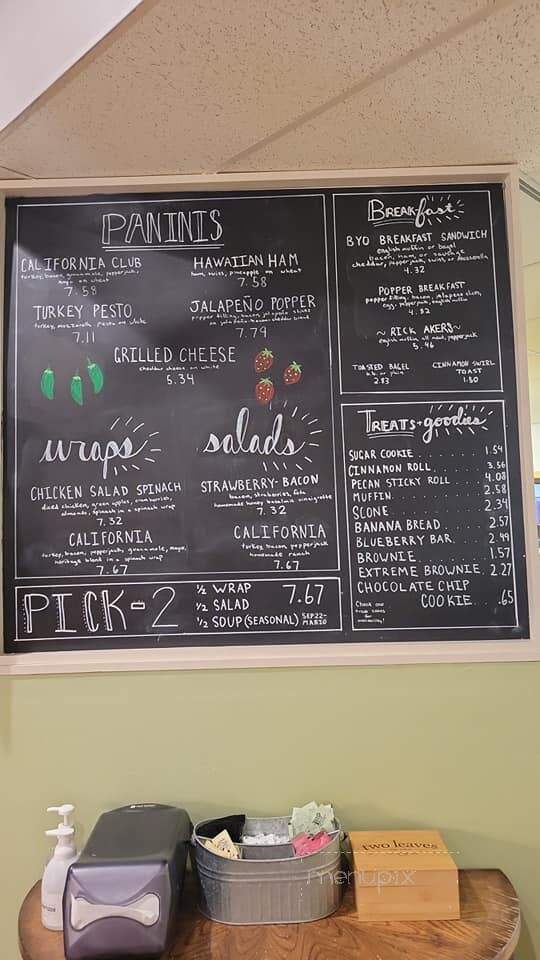 PANINIS
CALIFORNIA CLUB
turkey, bacon, guacamole, pepperjack,
mayo on wheat
7.58
HAWAIIAN HAM
ham, swiss, pineapple on wheat
7.58
TURKEY PESTO
turkey, mozzarella, pesto on white
7.11
JALAPEÑO POPPER
popper filling, bacon, jalapeño slices
on jalapeño-bacon-cheddar bread
7.79
GRILLED CHEESE
cheddar cheese on white
5.34
wraps
CHICKEN SALAD SPINACH
diced chicken, green apples, cranberries,
almonds, spinach in a spinach wrap
7.32
CALIFORNIA
turkey, bacon, pepperjack, guacamole, mayo,
heritage blend in a spinach wrap
7.67
salads
STRAWBERRY-BACON
bacon, strawberries, feta
homemade honey balsamic vinaigrette
7.32
CALIFORNIA
turkey, bacon, pepperjack
homemade ranch
7.67
PICK-2
1/2 WRAP
1/2 SALAD
1/2 SOUP (SEASONAL) SEP 22-
MAR 20
7.67
BREAKfast
BYO BREAKFAST SANDWICH
english muffin or bagel
bacon, ham, or sausage
cheddar, pepperjack, swiss or mozzarella
4.32
POPPER BREAKFAST
popper filling, bacon, jalapeño slices,
egg, pepperjack, english muffin
4.82
~ RICK AKERS ~
english muffin all meat, pepperjack
5.46
TOASTED BAGEL
or plain
2.83
CINNAMON SWIRL
TOAST
1.50
TREATS + goodies
SUGAR COOKIE . . . . . 1.54
CINNAMON ROLL . . . . . 3.56
PECAN STICKY ROLL 4.08
MUFFIN . . . . . 2.58
SCONE . . . . . 2.34
BANANA BREAD . . . . . 2.57
BLUEBERRY BAR . . . . . 2.49
BROWNIE . . . . . 1.57
EXTREME BROWNIE . 2.27
CHOCOLATE CHIP
COOKIE . . . .65
Check our
cases for
availability!
two leaves
menupix